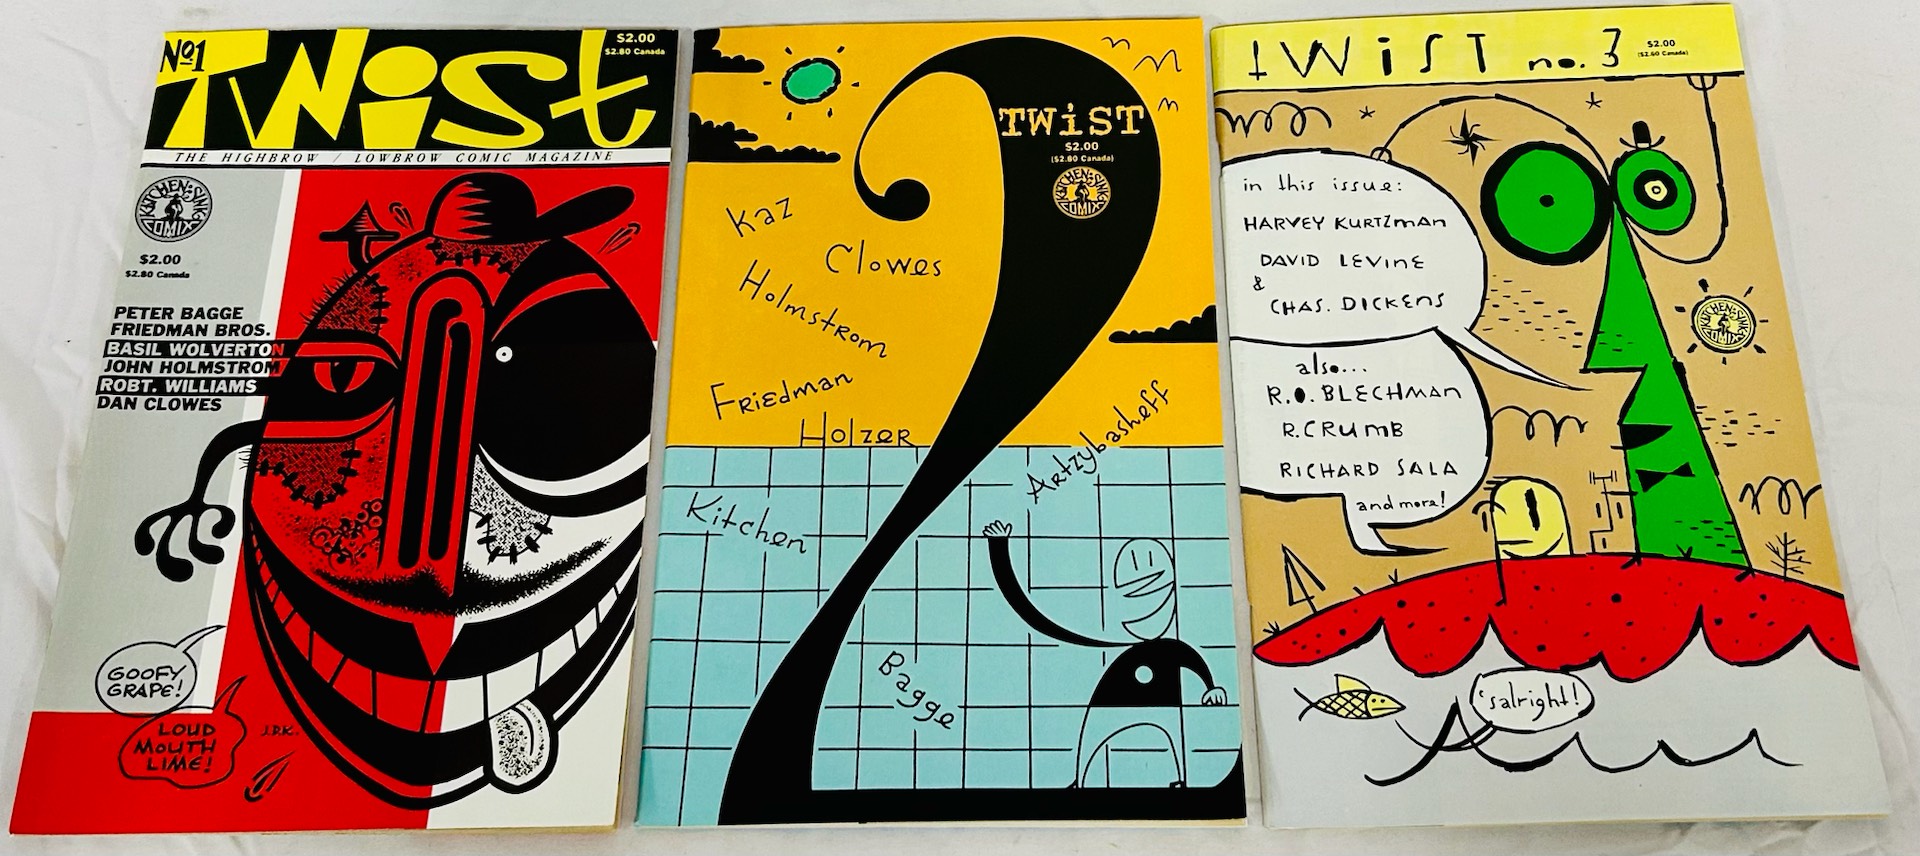 No1
TWiSt
$2.00
$2.80 Canada
THE HIGHBROW / LOWBROW COMIC MAGAZINE
KITCHEN SINK COMIX
$2.00
$2.80 Canada
PETER BAGGE
FRIEDMAN BROS.
BASIL WOLVERTON
JOHN HOLMSTROM
ROBT. WILLIAMS
DAN CLOWES
GOOFY
GRAPE!
LOUD
MOUTH
LIME!
J.D.K.
2
TWiST
$2.00
($2.80 Canada)
KITCHEN SINK COMIX
Kaz
Clowes
Holmstrom
Friedman
Holzer
Artzybasheff
Kitchen
Bagge
tWiST no. 3
$2.00
($2.80 Canada)
in this issue:
HARVEY KURTZman
DAVID LEVINE
&
CHAS. DICKENS
also...
R.O. BLECHMAN
R. CRUMB
RICHARD SALA
and more!
KITCHEN SINK COMIX
'salright!